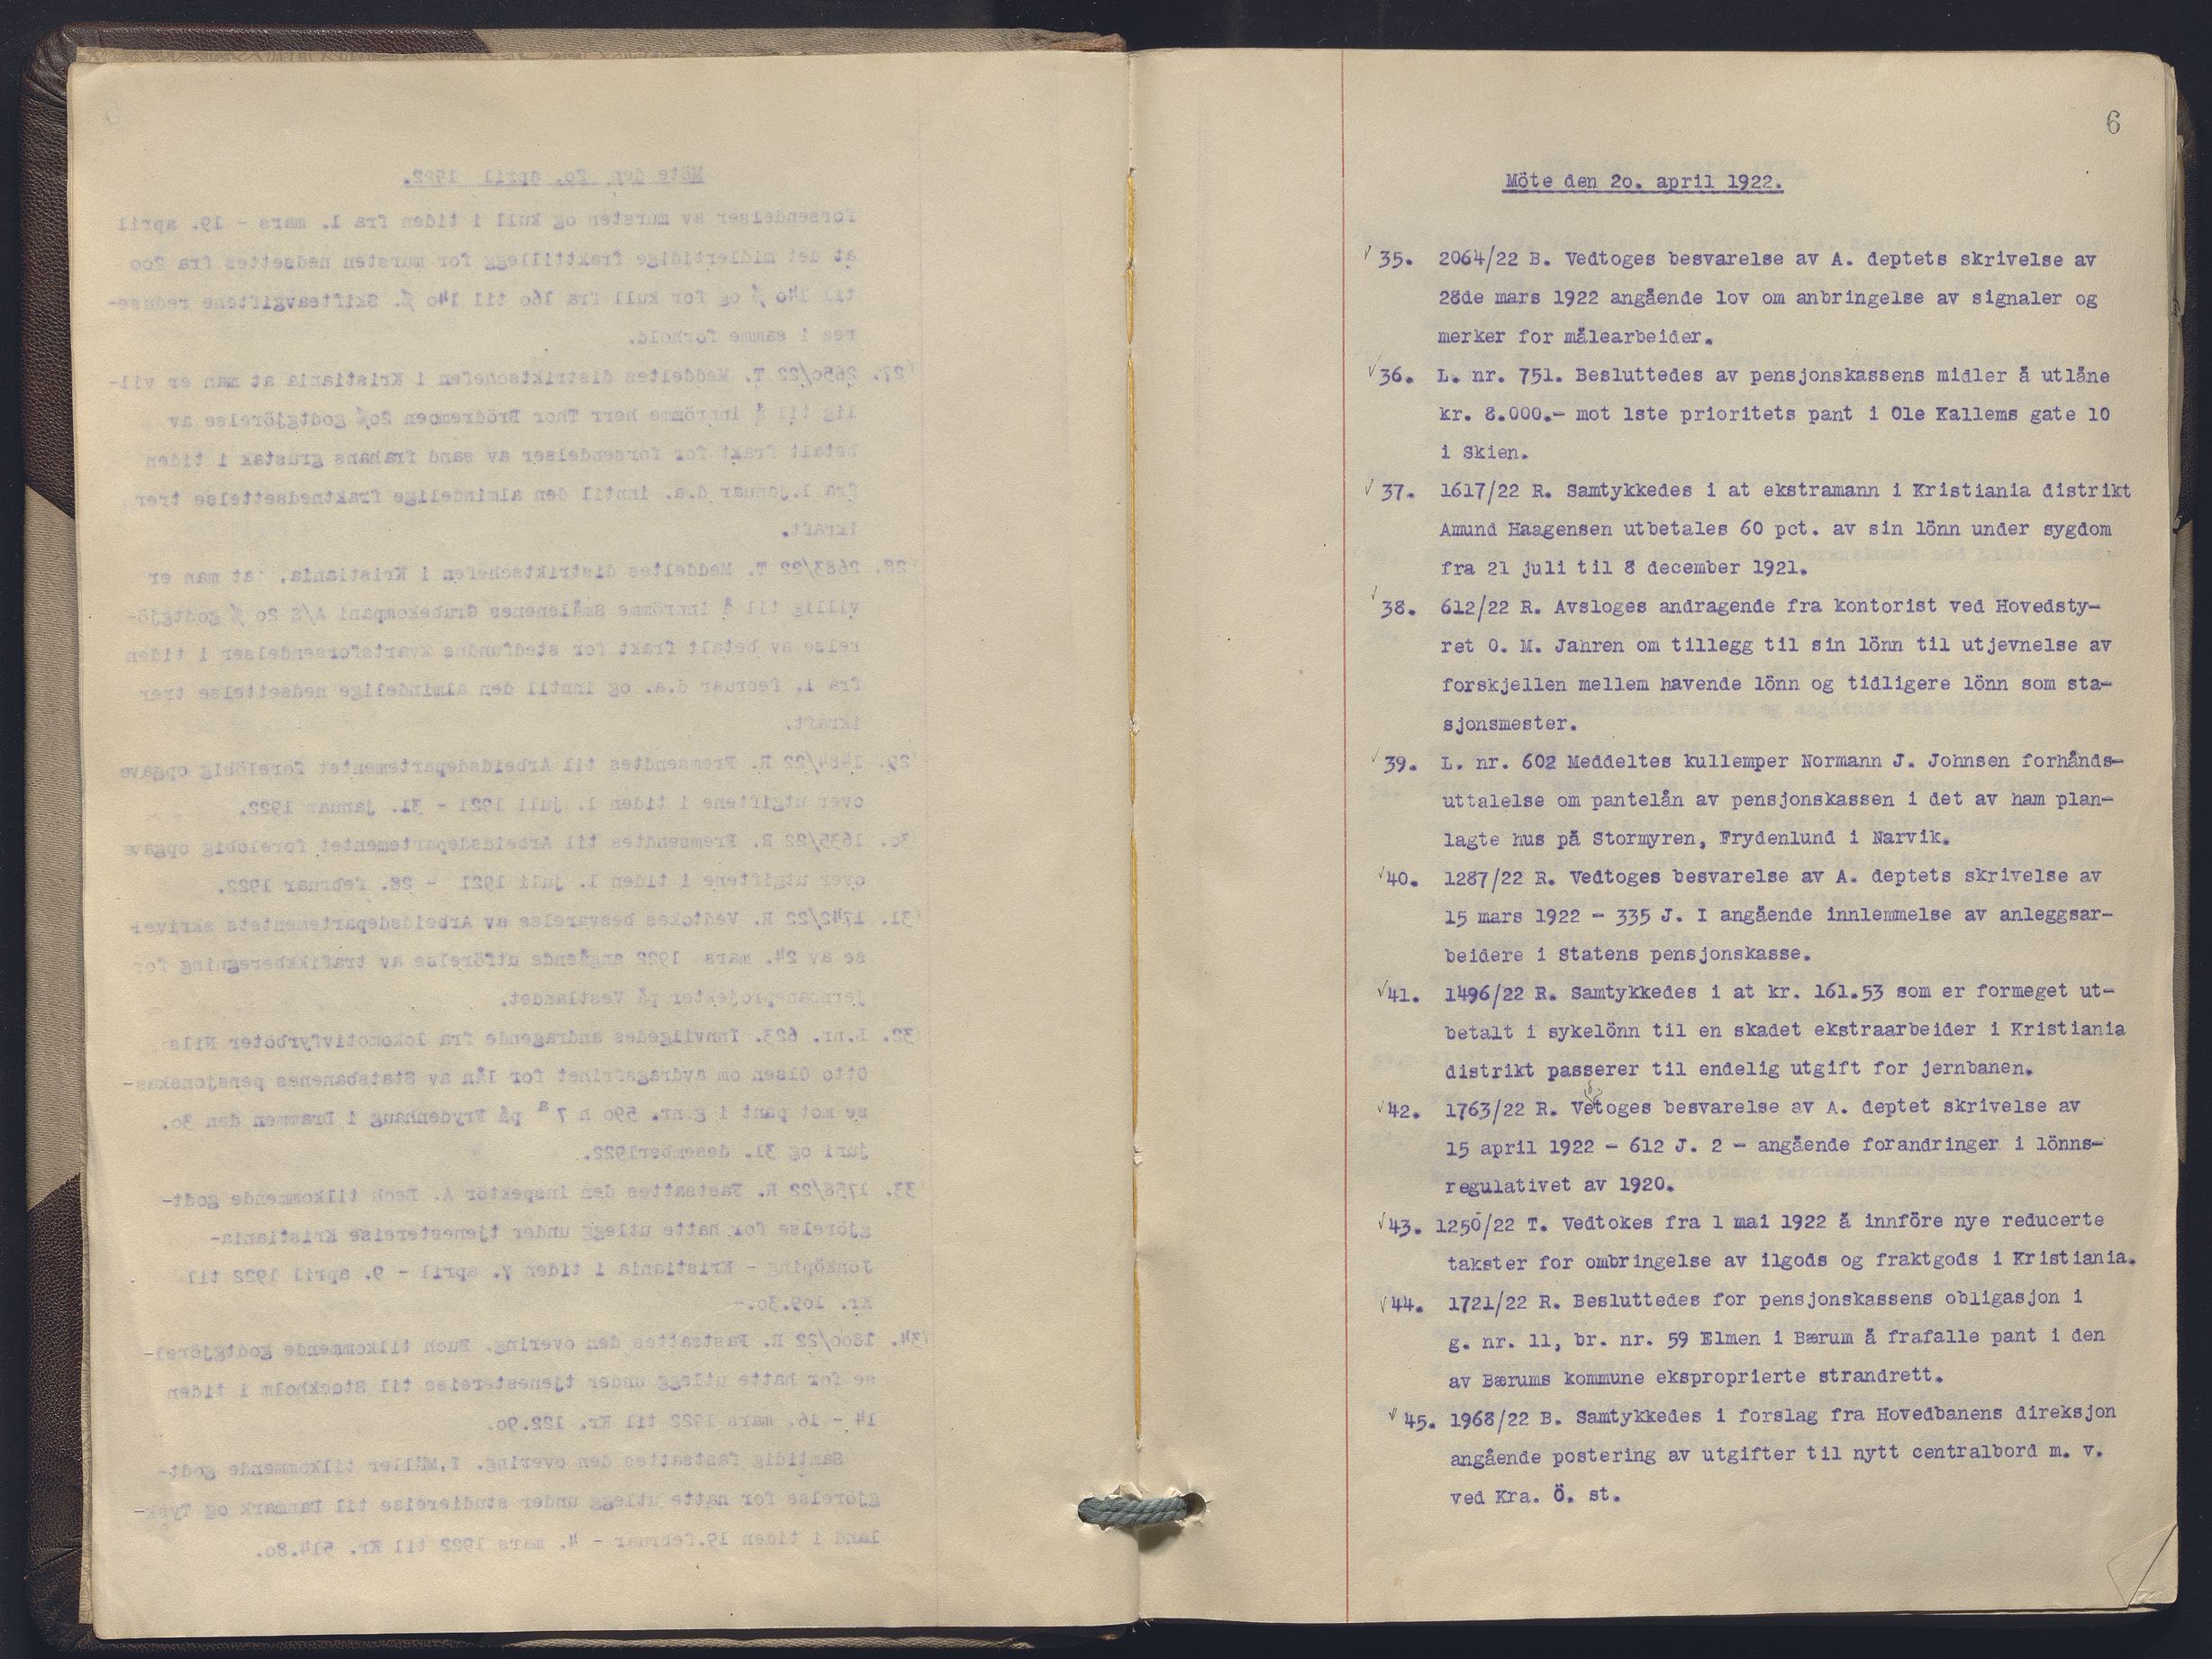 6
Möte den 2o. april 1922.
√ 35. 2064/22 B. Vedtoges besvarelse av A. deptets skrivelse av
28de mars 1922 angående lov om anbringelse av signaler og
merker for målearbeider.
√ 36. L. nr. 751. Besluttedes av pensjonskassens midler å utlåne
kr. 8.000.- mot 1ste prioritets pant i Ole Kallems gate 10
i Skien.
√ 37. 1617/22 R. Samtykkedes i at ekstramann i Kristiania distrikt
Amund Haagensen utbetales 60 pct. av sin lönn under sygdom
fra 21 juli til 8 december 1921.
√ 38. 612/22 R. Avsloges andragende fra kontorist ved Hovedsty-
ret O. M. Jahren om tillegg til sin lönn til utjevnelse av
forskjellen mellem havende lönn og tidligere lönn som sta-
sjonsmester.
√ 39. L. nr. 602 Meddeltes kullemper Normann J. Johnsen forhånds-
uttalelse om pantelån av pensjonskassen i det av ham plan-
lagte hus på Stormyren, Frydenlund i Narvik.
√ 40. 1287/22 R. Vedtoges besvarelse av A. deptets skrivelse av
15 mars 1922 - 335 J. I angående innlemmelse av anleggsar-
beidere i Statens pensjonskasse.
√ 41. 1496/22 R. Samtykkedes i at kr. 161.53 som er formeget ut-
betalt i sykelönn til en skadet ekstraarbeider i Kristiania
distrikt passerer til endelig utgift for jernbanen.
√ 42. 1763/22 R. Vetoges besvarelse av A. deptet skrivelse av
15 april 1922 - 612 J. 2 - angående forandringer i lönns-
regulativet av 1920.
√ 43. 1250/22 T. Vedtokes fra 1 mai 1922 å innföre nye reducerte
takster for ombringelse av ilgods og fraktgods i Kristiania.
√ 44. 1721/22 R. Besluttedes for pensjonskassens obligasjon i
g. nr. 11, br. nr. 59 Elmen i Bærum å frafalle pant i den
av Bærums kommune eksproprierte strandrett.
√ 45. 1968/22 B. Samtykkedes i forslag fra Hovedbanens direksjon
angående postering av utgifter til nytt centralbord m. v.
ved Kra. Ö. st.